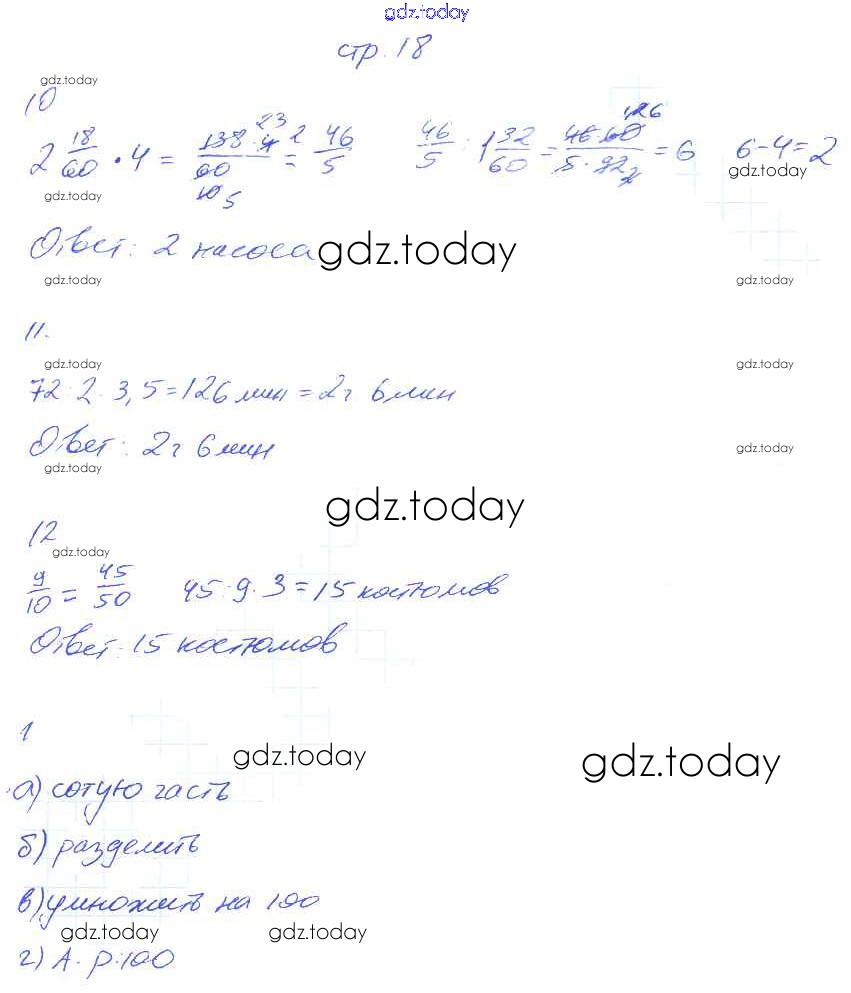 gdz.today
стр. 18
gdz.today
10
2 18/60 · 4 = 138 · 4 / 60 = 46/5   46/5 : 1 32/60 = 46 · 60 / 5 · 92 = 6   6 - 4 = 2
gdz.today
gdz.today
Ответ: 2 насоса gdz.today
gdz.today
gdz.today
11.
gdz.today
gdz.today
72 : 2 · 3,5 = 126 мин = 2ч 6мин
Ответ: 2ч 6мин
gdz.today
gdz.today
gdz.today
12
gdz.today
9/10 = 45/50   45 : 9 · 3 = 15 костюмов
Ответ: 15 костюмов
1
gdz.today
gdz.today
а) сотую часть
б) разделить
в) умножить на 100
gdz.today
gdz.today
г) А · р : 100